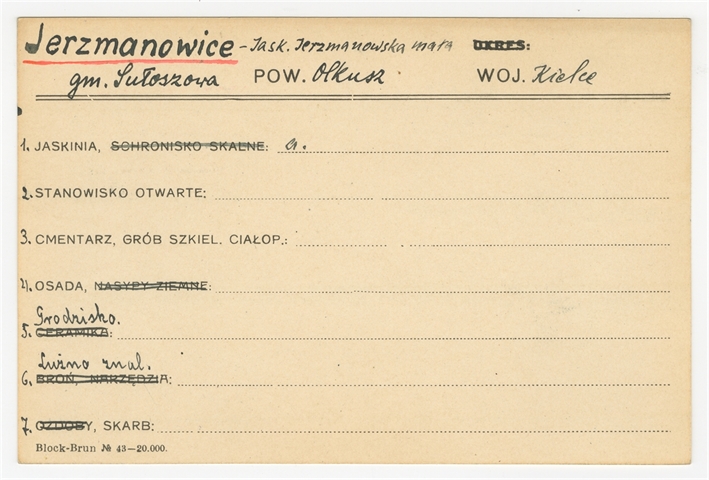 Jerzmanowice - Jask. Jerzmanowska mała OKRES:
gm. Sułoszowa POW. Olkusz WOJ. Kielce
1. JASKINIA, SCHRONISKO SKALNE: a.
2. STANOWISKO OTWARTE:
3. CMENTARZ, GRÓB SZKIEL. CIAŁOP.:
4. OSADA, NASYPY ZIEMNE:
Grodzisko.
5. CERAMIKA:
Luźno znal.
6. BROŃ, NARZĘDZIA:
7. OZDOBY, SKARB:
Block-Brun № 43—20.000.